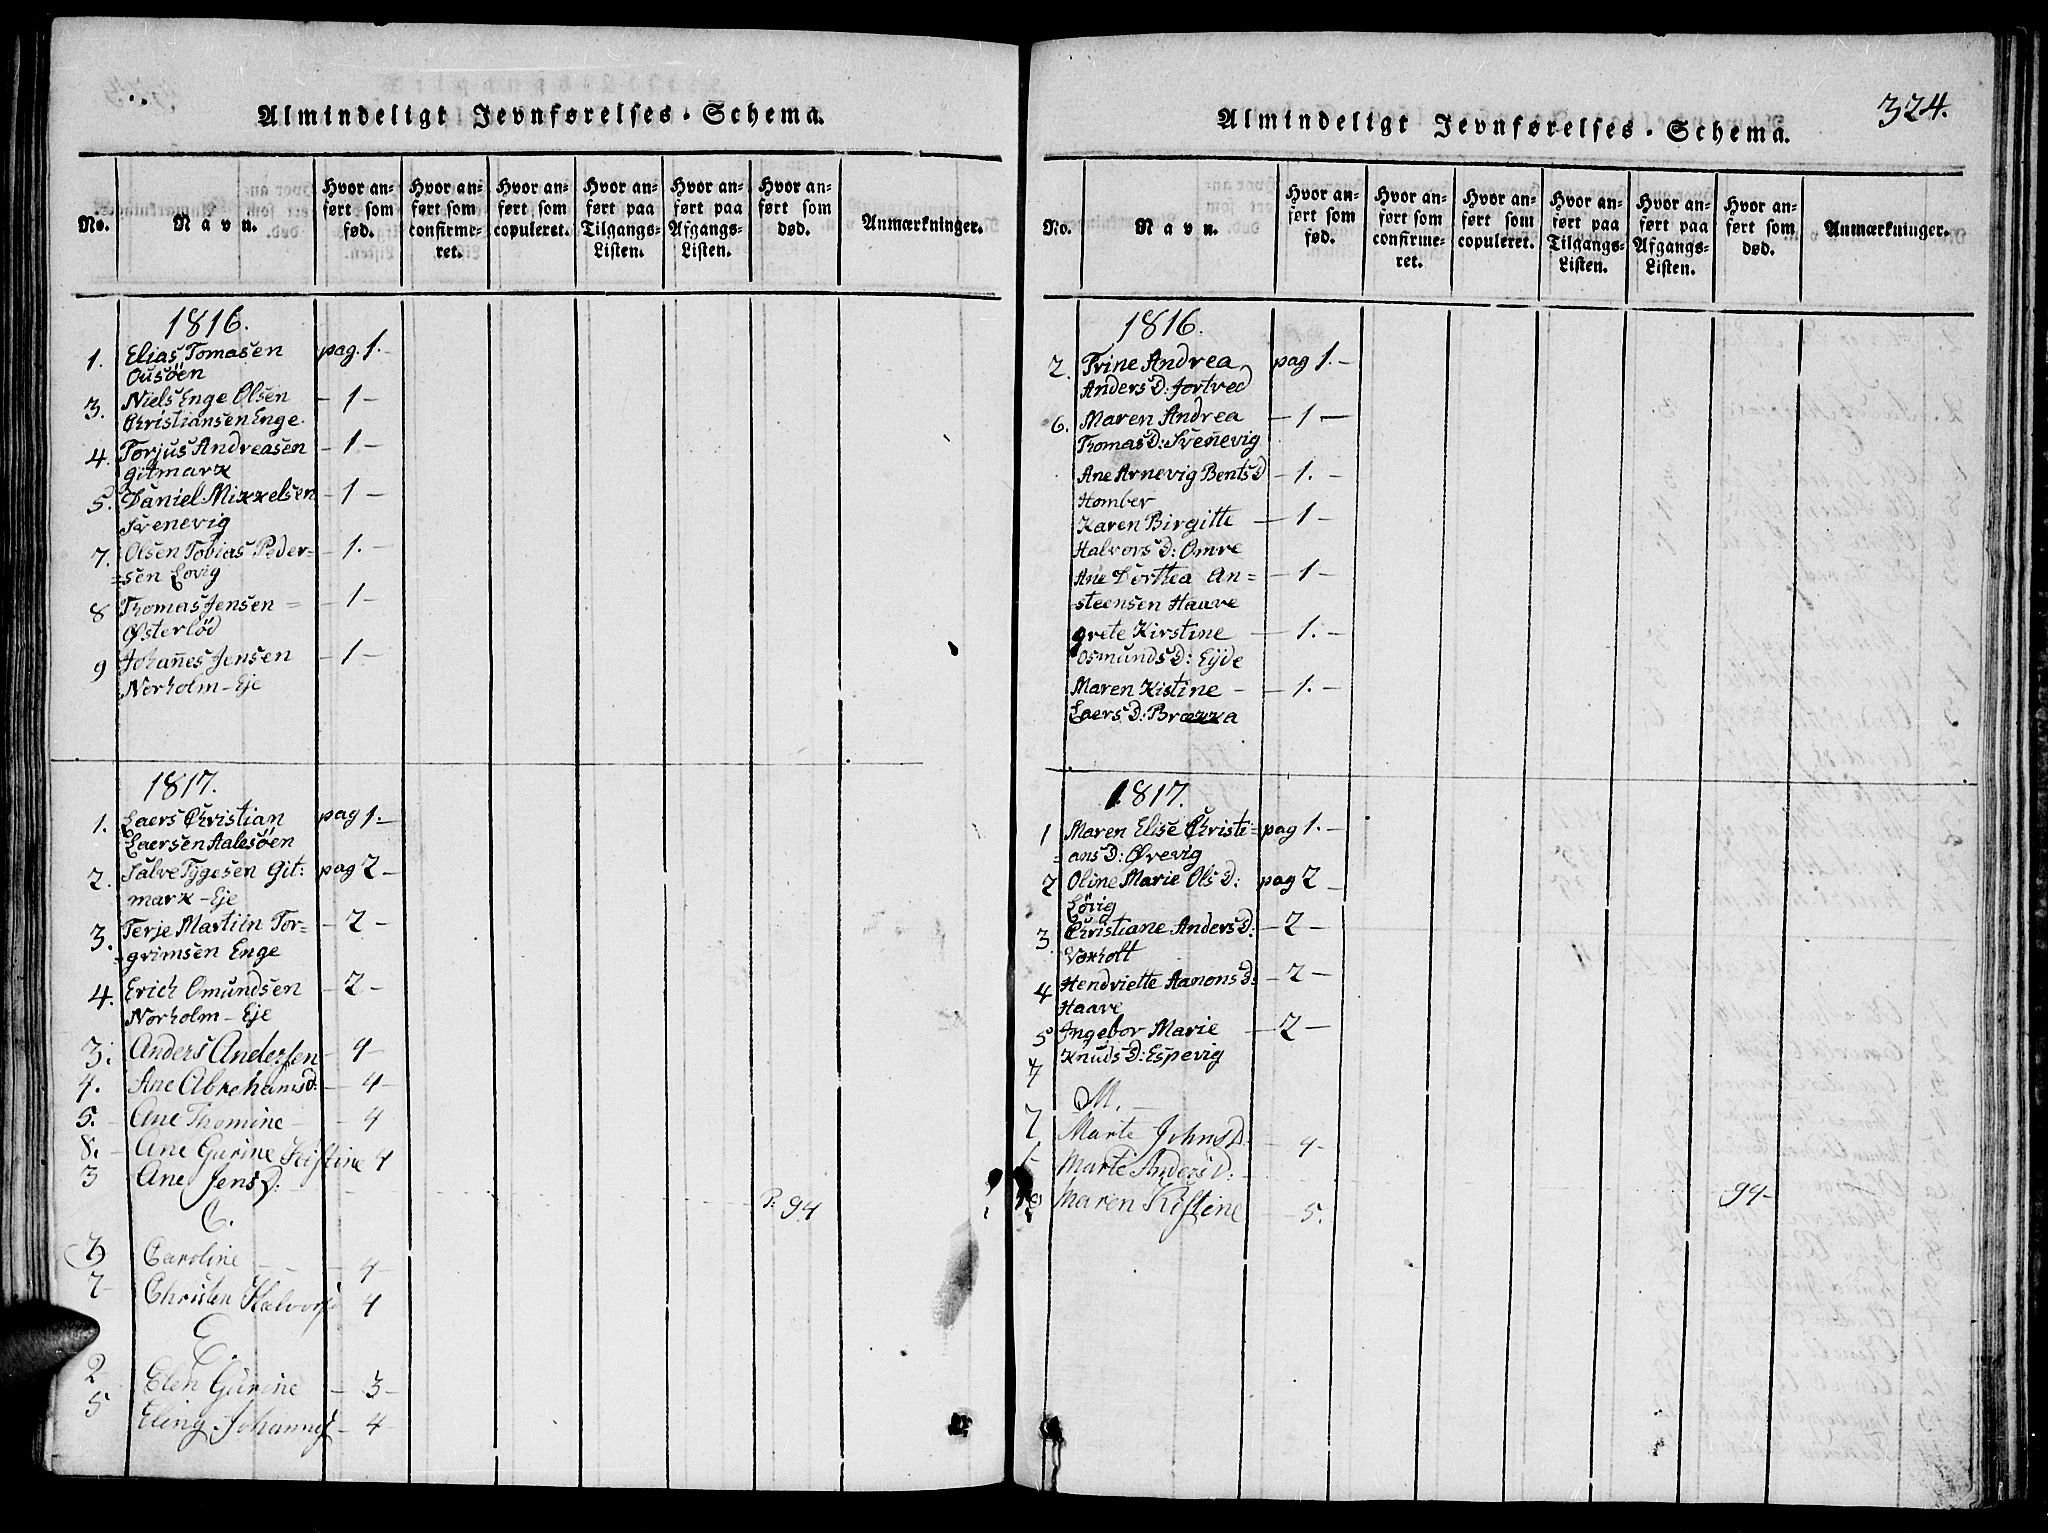 Almindeligt Jevnførelses-Schema.
No.
Navn.
Hvor anført som fød.
Hvor anført som confirmeret.
Hvor anført som copuleret.
Hvor anført paa Tilgangs-Listen.
Hvor anført paa Afgangs-Listen.
Hvor anført som død.
Anmærkninger.
1816.
1. Elias Tomasen pag. 1.-
Ousöen
3. Niels Enge Olsen - 1 -
Christiansen Enge.
4. Torjus Andreasen - 1 -
Gitmark
5. Daniel Mikkelsen - 1 -
Svenevig
7. Olsen Tobias Peder= - 1. -
=sen Lovig
8 Thomas Jensen = - 1 -
Østerlöd
9 Johan̄es Jensen - 1 -
Norholm-Eje
1817.
1. Laers Christian pag 1.-
Laersen Aalesöen
2. Salve Tygesen Git: pag 2 -
mark-Eje
3. Terje Martiin Tor= - 2 -
=grimsen Enge
4. Erich Omundsen - 2 -
Norholm-Eje
3. Anders Andersen - 4 -
4. Ane Abrehamsd: - 4 -
5. Ane Thomine - 4
8. Ane Gurine Kistine 4
3 Ane Jens D: P: 94
C.
7 Caroline - - - 4 -
7 Christen Halvors 4
E.
2 Elen Gurine - 3 -
5 Eling Johannes - 4 -
324.
Almindeligt Jevnførelses-Schema.
No.
Navn.
Hvor anført som fød.
Hvor anført som confirmeret.
Hvor anført som copuleret.
Hvor anført paa Tilgangs-Listen.
Hvor anført paa Afgangs-Listen.
Hvor anført som død.
Anmærkninger.
1816.
2. Trine Andrea pag 1. -
Anders D: Jortved
6. Maren Andrea - 1 -
Thomas D: Svenevig
Ane Arnevig Bents D - 1. -
Homber
Karen Birgitte - 1 -
Halvors D: Omre
Ane Dorthea An= - 1 -
steensen Haave
Grete Kirstine - 1. -
Osmunds D: Eyde
Maren Kistine - - 1. -
Laers D: Brækka
1817.
1 Maren Elise Christi= pag 1. -
=ans D: Ørevig
2 Oline Marie Ols D: pag 2 -
Lövig
3. Christiane Anders D: - 2 -
Voxholt
4 Hendriette Aanons D: - 2 -
Haave
5 Ingebor Marie - 2 -
Knuds D: Espevig
7
M.
7 Marte Johns D - 4 -
Marte Anders D:
Maren Kistine 5. 94-